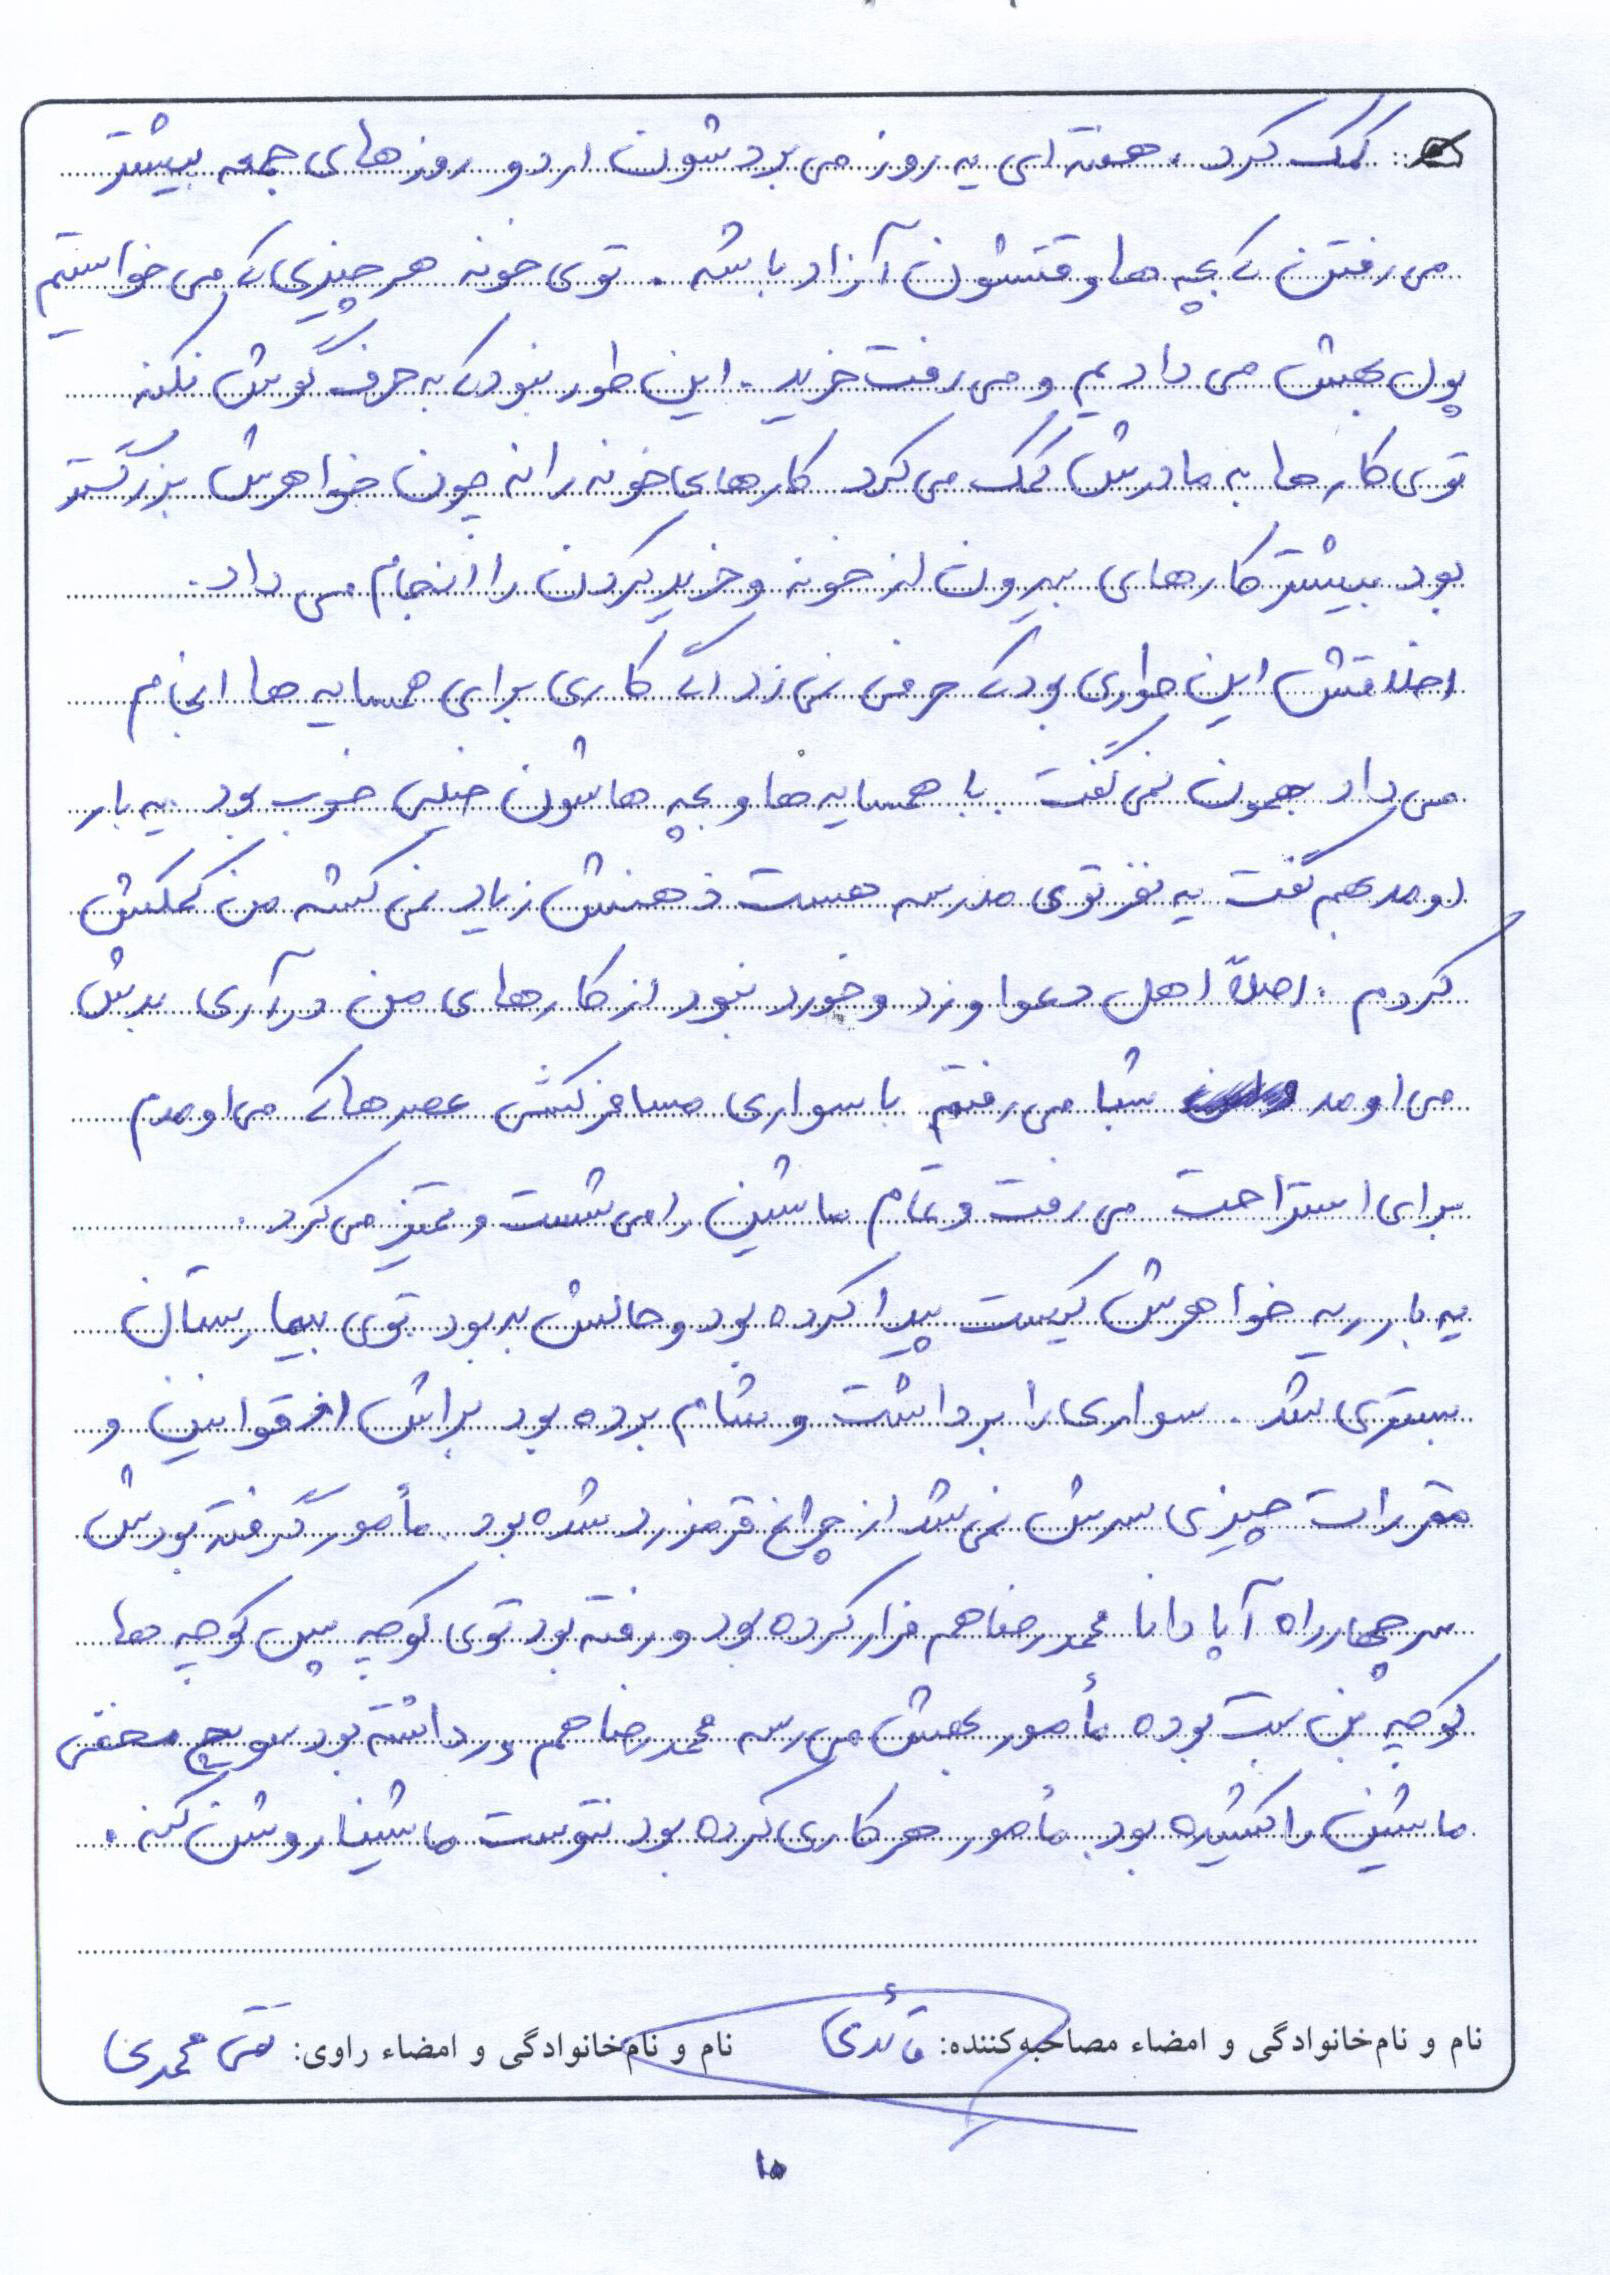 کمک کرد . هفته ای یه روز می بردشون اردو روزهای جمعه بیشتر
می رفتن که بچه ها وقتشون آزاد باشه . توی خونه هر چیزی که می خواستیم
پول بهش می دادیم و می رفت خرید . این طور نبود که به حرف گوش نکنه
توی کارها به مادرش کمک می کرد کارهای خونه را نه چون خواهرش بزرگتر
بود بیشتر کارهای بیرون از خونه و خرید کردن را انجام می داد .
اخلاقش این جوری بود که حرفی نمی زد اگه کاری برای همسایه ها انجام
می داد بهمون نمی گفت . با همسایه ها و بچه هاشون خیلی خوب بود . یه بار
اومد بهم گفت یه نفر توی مدرسه هست ذهنش زیاد نمی کشه من کمکش
کردم . اصلاً اهل دعوا و زد و خورد نبود از کارهای من درآری بدش
می اومد شبا می رفتم با سواری مسافرکشی عصرها که می اومدم
برای استراحت می رفت و تمام ماشین را می شست و تمیز می کرد .
یه بار دیه خواهرش کیست پیدا کرده بود و حالش بد بود توی بیمارستان
بستری شد . سواری را برداشت و شام برده بود براش از قوانین و
مقررات چیزی سرش نمی شد از چراغ قرمز رد شده بود . مأمور گرفته بودش
سر چهارراه آپادانا محمدرضا هم فرار کرده بود و رفته بود توی کوچه پس کوچه ها
کوچه بن بست بوده مأمور بهش می رسه محمدرضا هم ورداشته بود سویچ مخفی
ماشین را کشیده بود . مأمور هر کاری کرده بود نتوست ماشینا روشن کنه .
نام و نام‌خانوادگی و امضاء مصاحبه‌کننده: قائدی نام و نام‌خانوادگی و امضاء راوی: تقی محمدی
۱۵